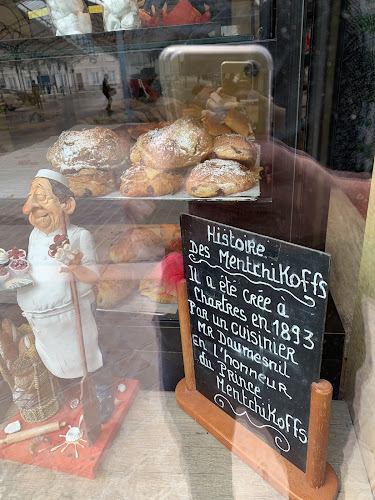 Histoire
Des MentchiKoffs
Il a été crée à
Chartres en 1893
Par un cuisinier
MR Daumesnil
en l'honneur
du Prince
MentchiKoffs